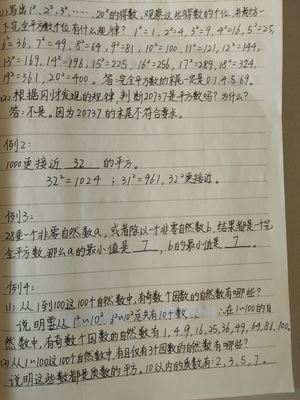 (1)写出1²、2²、3²、……、20²的得数,观察这些得数的个位,并总结一
下完全平方数个位有什么规律? 1²=1,2²=4,3²=9,4²=16,5²=25,
6²=36,7²=49,8²=64,9²=81,10²=100,11²=121,12²=144,
13²=169,14²=196,15²=225,16²=256,17²=289,18²=324,
19²=361,20²=400。答:完全平方数的末尾一定是0.1.4.5.6.9。
(2)根据刚才发现的规律,判断20737是平方数吗?为什么?
答:不是。因为20737的末尾不符合要求。
例2:
1000更接近 32 的平方。
32²=1024 ; 31²=961,32²更接近。
例3:
28乘一个非零自然数a,或者除以一个非零自然数b,结果都是一个完
全平方数,那么a的最小值是 7 ,b的最小值是 7 。
例4:
(1)从1到100这100个自然数中,有奇数个因数的自然数有哪些?
说明要从1²~10²,1²~10²总共有10个数 ∴在1~100的自
然数中,有奇数个因数的自然数有1,4,9,16,25,36,49,64,81,100。
(2)从1~100这100个自然数中,有且仅有3个因数的自然数有哪些?
说明这些数都是质数的平方。10以内的质数有:2,3,5,7。